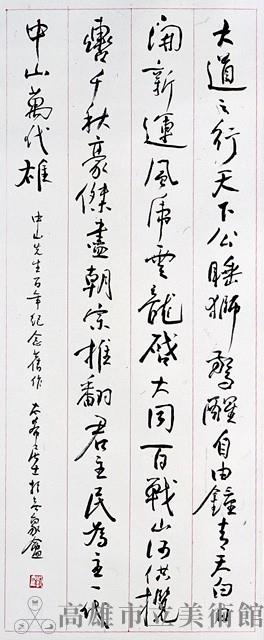 大道之行天下公睡獅驚醒自由鐘青天白日
開新運風虎雲龍啓大同百戰山河供攬
轡千秋豪傑盡朝宗推翻君主民為主一代
中山萬代雄
中山先生百年紀念舊作 太希居士於无象盦
高雄市立美術館